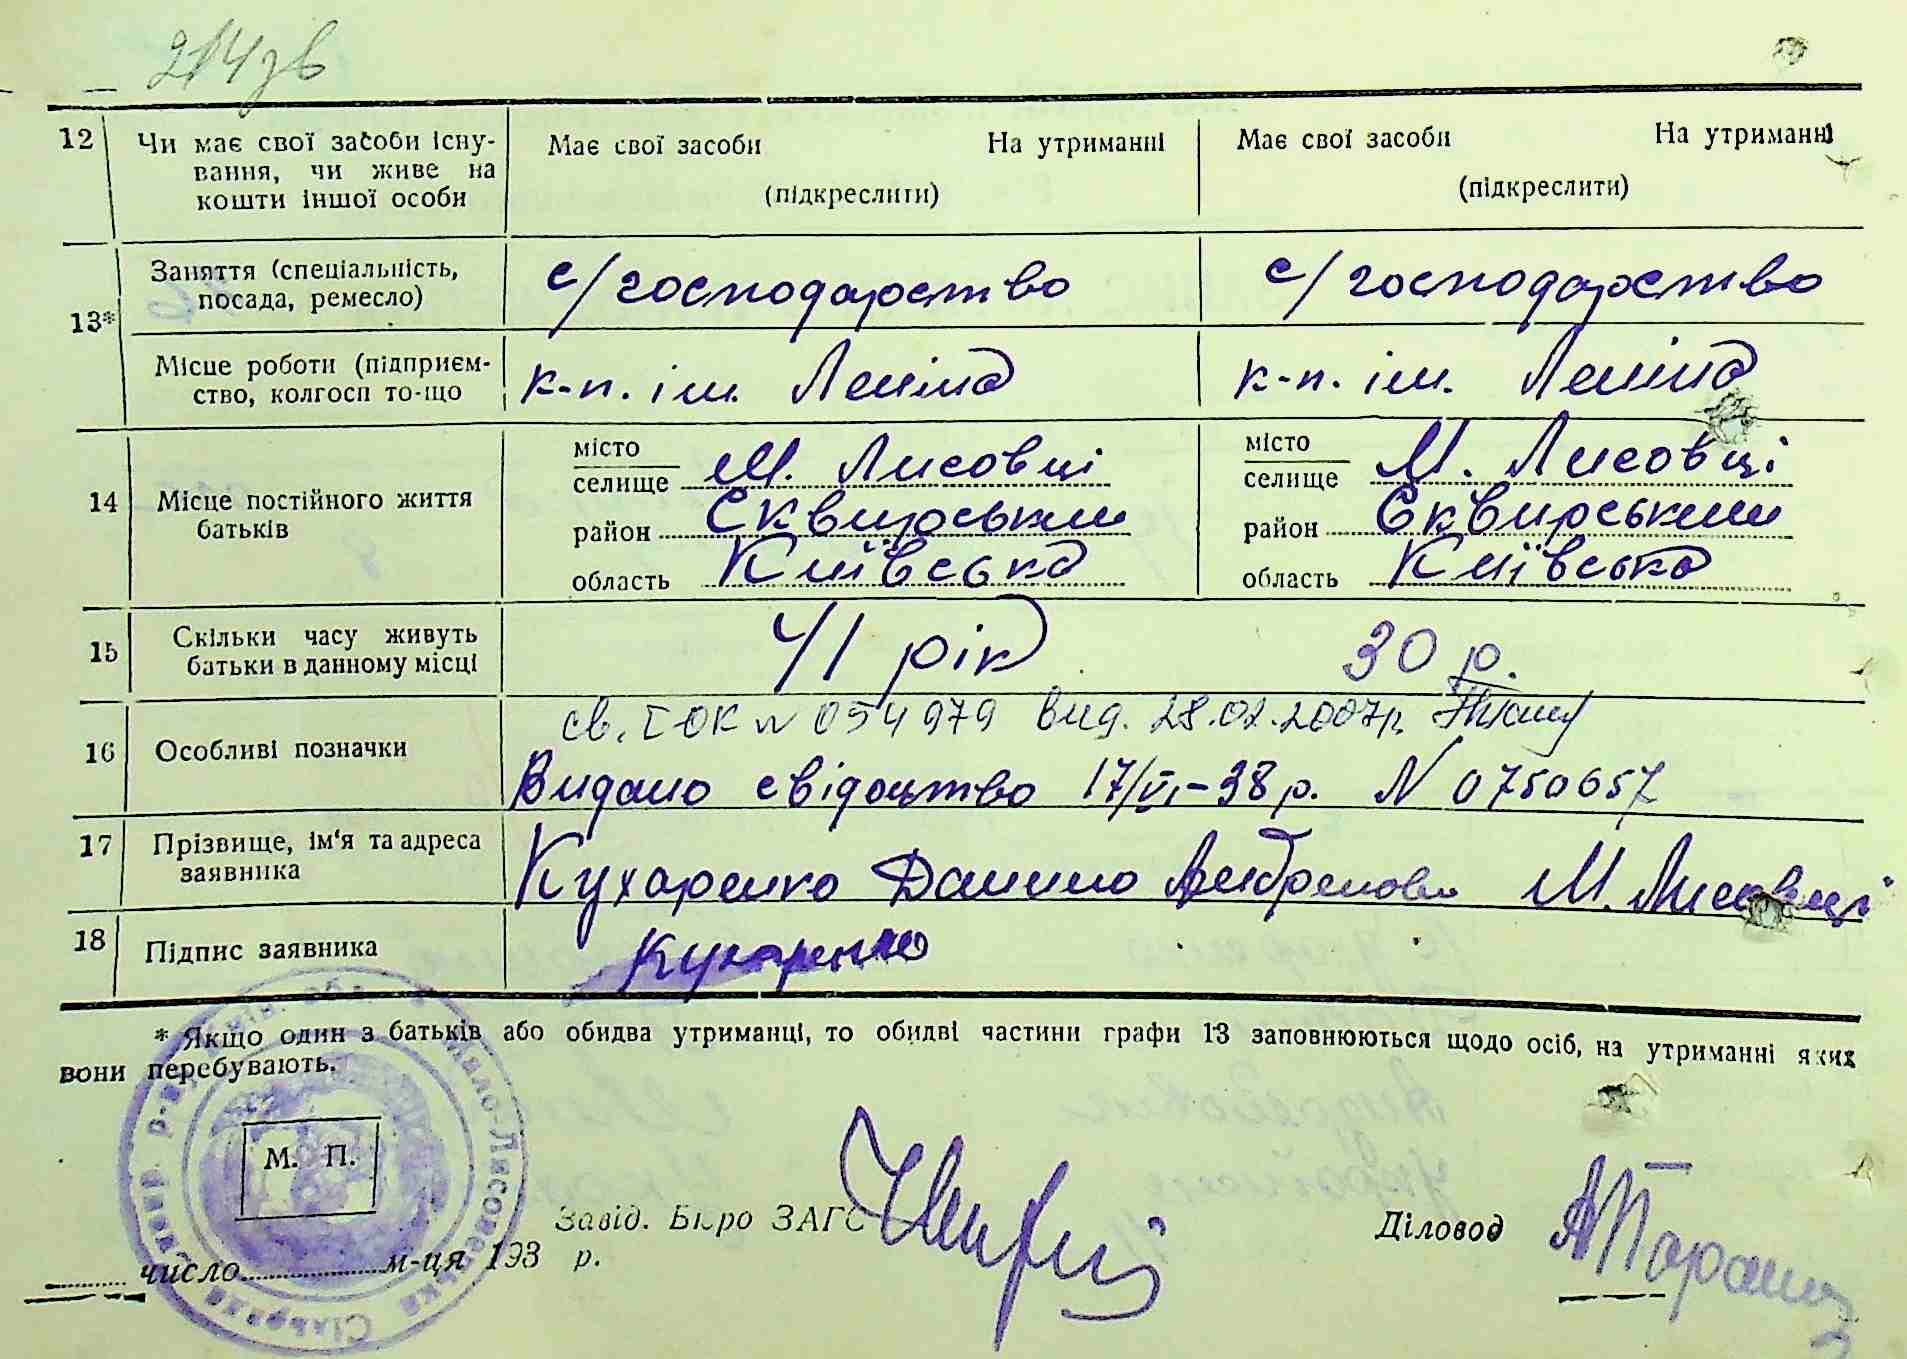 214 зв
12 Чи має свої засоби існу-
вання, чи живе на
кошти іншої особи
Має свої засоби На утриманні
(підкреслити)
Має свої засоби На утриманні
(підкреслити)
13*
Заняття (спеціальність,
посада, ремесло)
с/господарство
с/господарство
Місце роботи (підприєм-
ство, колгосп то-що
к-п. ім. Леніна
к-п. ім. Леніна
14 Місце постійного життя
батьків
місто
селище М. Лисовці
район Сквирський
область Київська
місто
селище М. Лисовці
район Сквирський
область Київська
15 Скільки часу живуть
батьки в данному місці
41 рік
30 р.
16 Особливі позначки
св. І-ОК № 054979 вид. 28.02.2007р.
Видано свідоцтво 17/VI-38 р. N 0750657
17 Прізвище, ім'я та адреса
заявника
Кухаренко Данило М. Лисовці
18 Підпис заявника
Кухаренко
* Якщо один з батьків або обидва утриманці, то обидві частини графи 13 заповнюються щодо осіб, на утриманні яких
вони перебувають.
М. П.
Завід. Бюро ЗАГС
Діловод
число м-ця 193 р.